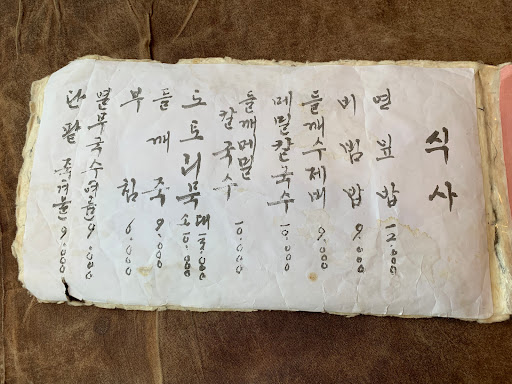 식사
12.000
비빔밥 9.000
들깨수제비 9.000
메밀칼국수 10.000
들깨메밀
칼국수 10.000
도토리묵 대 13.000
소 10.000
들깨죽 9.000
부침 6.000
열무국수 여름 9.000
단팥죽 겨울 9.000